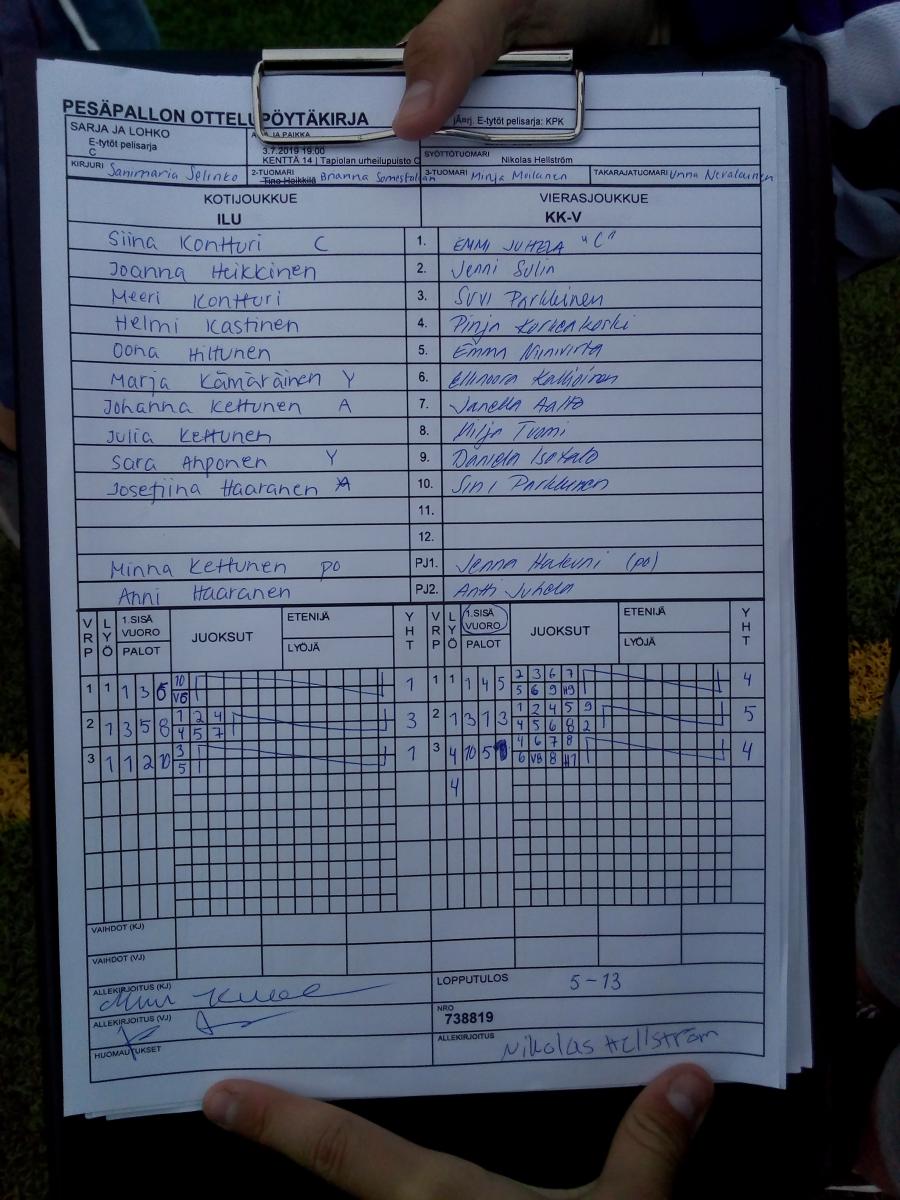 PESÄPALLON OTTELUPÖYTÄKIRJA
järj. E-tytöt pelisarja: KPK
SARJA JA LOHKO
E-tytöt pelisarja
C
AIKA JA PAIKKA
3.7.2019 19.00
KENTTÄ 14 | Tapiolan urheilupuisto C
SYÖTTÖTUOMARI
Nikolas Hellström
KIRJURI Sanimaria Selinko
2-TUOMARI Tino Heikkilä Brianna
3-TUOMARI Minja Moilanen
TAKARAJATUOMARI Unna Nevalainen
KOTIJOUKKUE VIERASJOUKKUE
ILU KK-V
Siina Kontturi C 1. EMMI JUHELA "C"
Joanna Heikkinen 2. Jenni Sulin
Meeri Kontturi 3. Suvi Parkkinen
Helmi Kastinen 4. Pinja Korkeakoski
Oona Hiltunen 5. Emma Niinivirta
Marja Kämäräinen Y 6. Ellinoora Kallioinen
Johanna Kettunen A 7. Janella Aalto
Julia Kettunen 8. Milja Tuomi
Sara Ahponen Y 9. Daniela Isotalo
Josefiina Haaranen A 10. Sini Parkkinen
11.
12.
Minna Kettunen po PJ1. Jenna (po)
Anni Haaranen PJ2. Antti Juhela
VRP LYÖ 1.SISÄ VUORO PALOT JUOKSUT ETENIJÄ LYÖJÄ YHT VRP LYÖ 1.SISÄ VUORO PALOT JUOKSUT ETENIJÄ LYÖJÄ YHT
1 1 1 3 6 10 1 1 1 1 4 5 2 3 6 7 4
V6 5 6 9 H9
2 1 3 5 8 1 2 4 3 2 1 3 1 3 1 2 4 5 9 5
4 5 7 4 5 6 8 2
3 1 1 2 10 3 1 3 4 10 5 4 6 7 8 4
5 6 V8 8 H1
4
VAIHDOT (KJ)
VAIHDOT (VJ)
ALLEKIRJOITUS (KJ)
LOPPUTULOS 5-13
ALLEKIRJOITUS (VJ)
NRO
738819
HUOMAUTUKSET
ALLEKIRJOITUS Nikolas Hellström